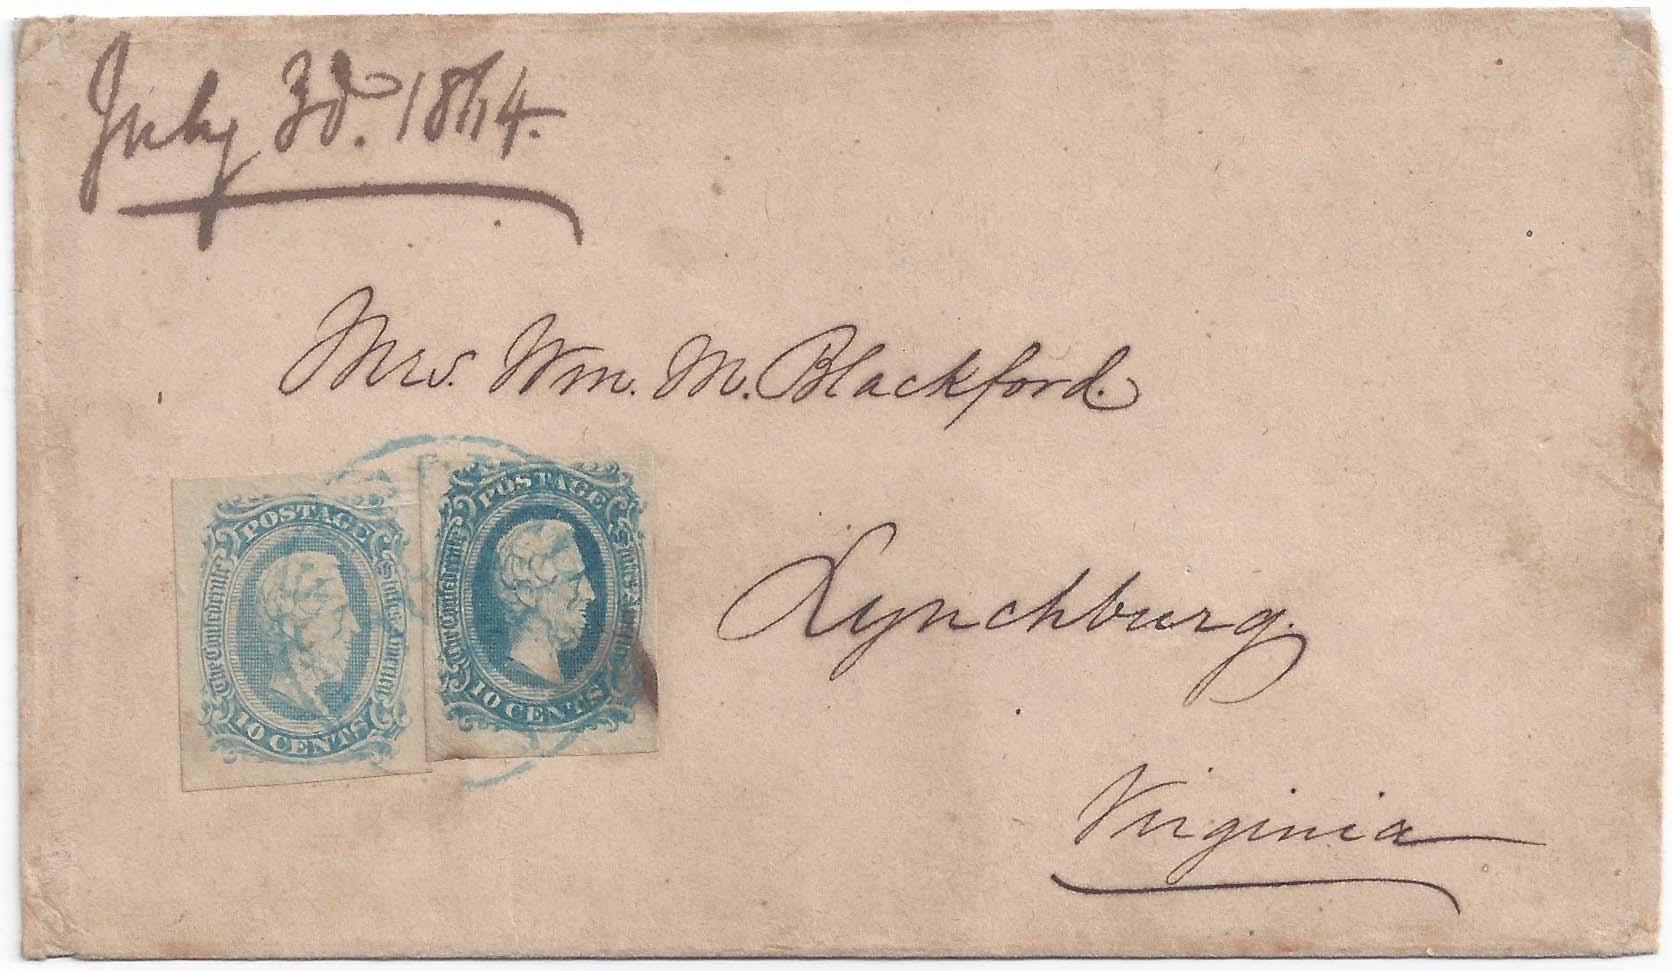 July 3d. 1864.
Mrs. Wm. M. Blackford.
POSTAGE
The Confederate States America
10 CENTS
POSTAGE
The Confederate States America
10 CENTS
Lynchburg.
Virginia